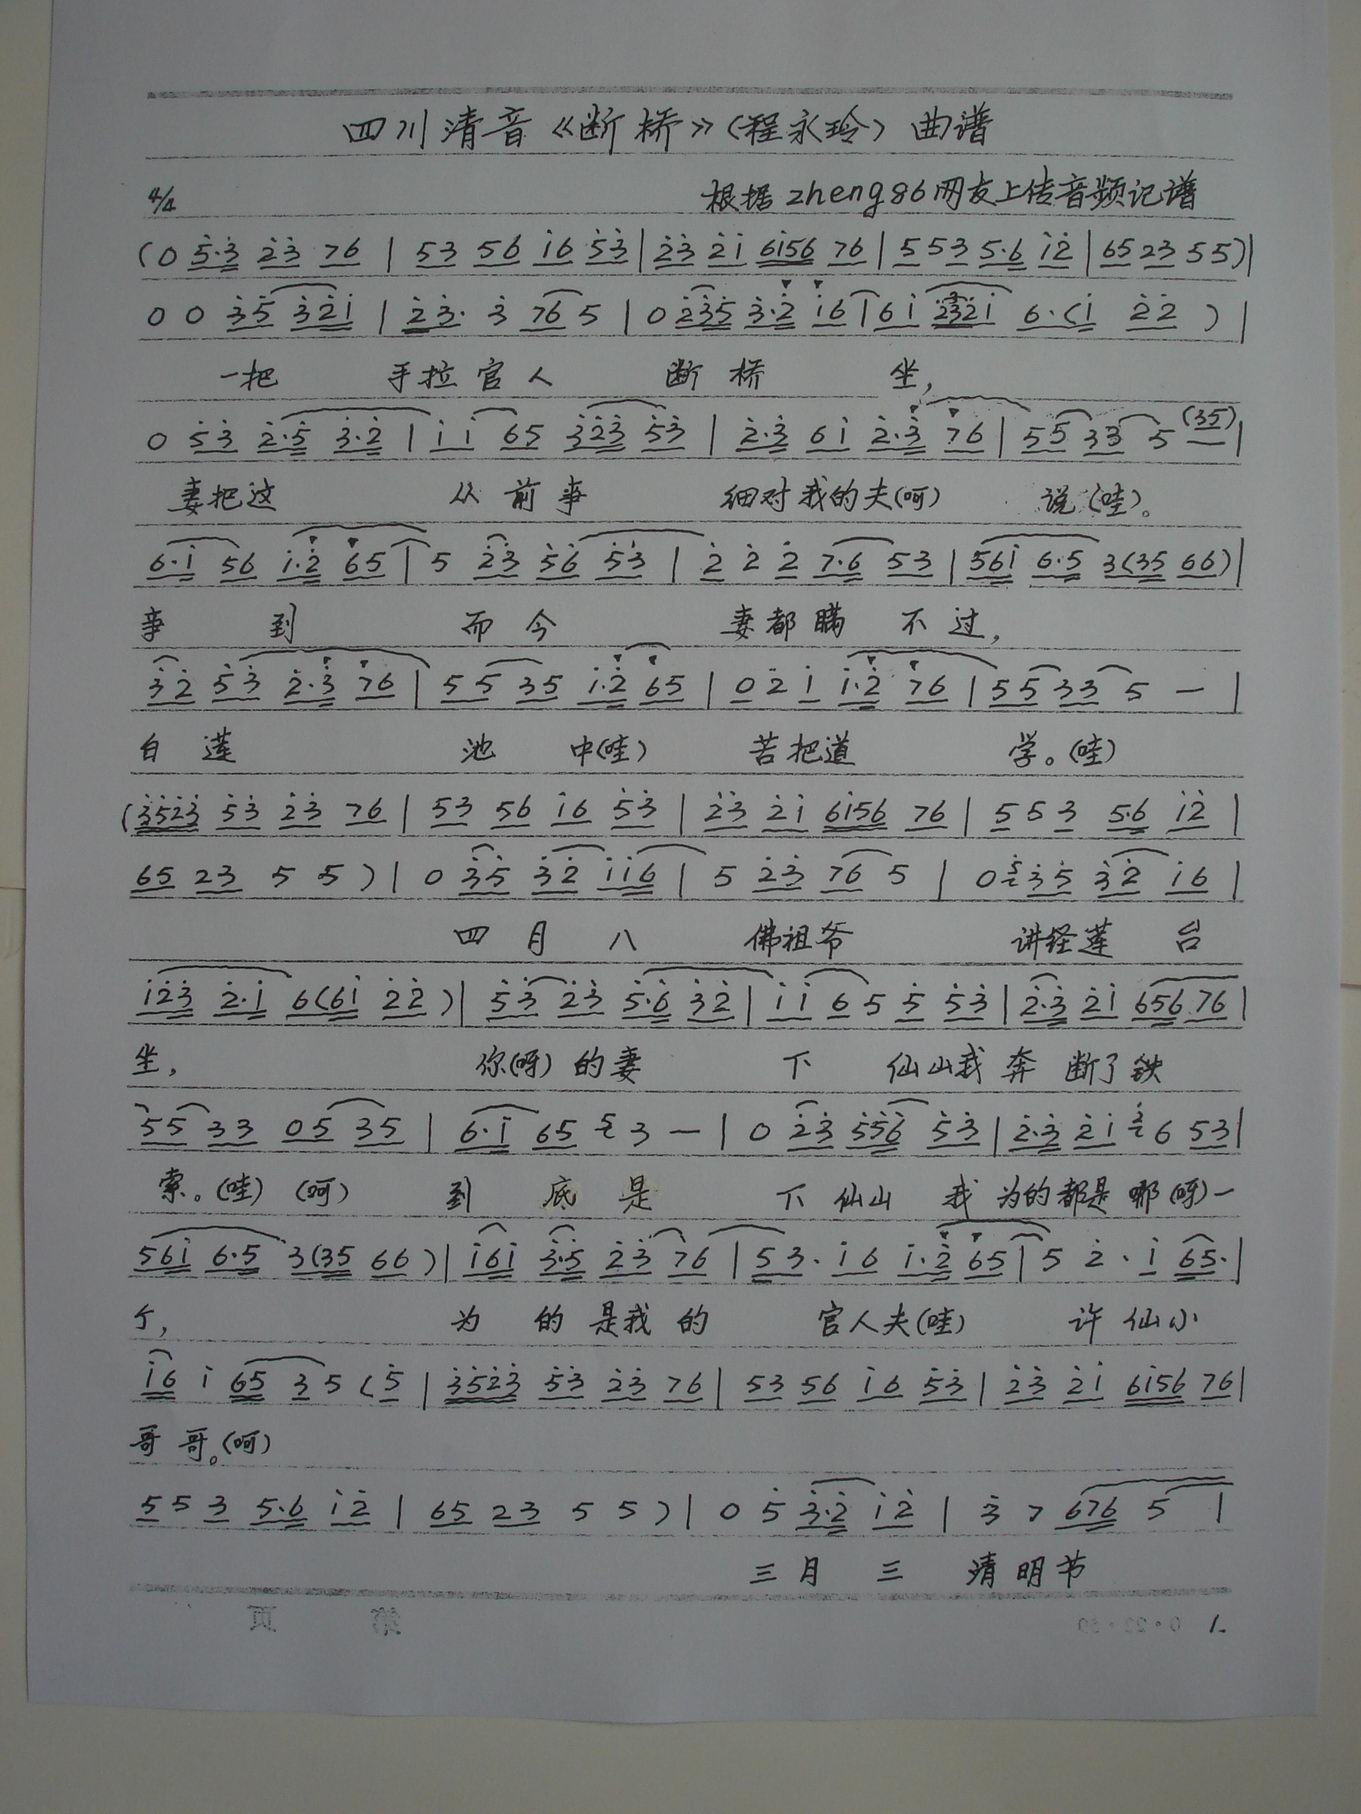 四川清音《断桥》(程永玲) 曲谱
4/4 根据zheng86网友上传音频记谱
(0 5·3 23 76 | 53 56 i6 53 | 23 2i 6i56 76 | 553 5·6 i2 | 65 23 5 5) |
0 0 35 32i | 23· 3 76 5 | 0 235 3·2 i6 | 6i 2321 6·(i 22) |
一把 手拉官人 断桥 坐,
0 53 2·5 3·2 | i i 65 323 53 | 2·3 6i 2·3 76 | 55 33 5 (35) |
妻把这 从前事 细对我的夫(呵) 说(哇)。
6·i 56 i·2 65 | 5 23 56 53 | 2 2 2 7·6 53 | 56i 6·5 3(35 66) |
事 到 而今 妻都瞒 不过,
32 53 2·3 76 | 55 35 i·2 65 | 02 i i·2 76 | 55 33 5 — |
白莲 池 中(哇) 苦把道 学。(哇)
(3523 53 23 76 | 53 56 i6 53 | 23 2i 6i56 76 | 553 5·6 i2 |
65 23 5 5) | 0 35 32 ii6 | 5 23 76 5 | 0 35 32 i6 |
四月八 佛祖爷 讲经莲台
i23 2·i 6(6i 22) | 53 23 5·6 32 | ii 6 5 5 53 | 2·3 2i 656 76 |
坐, 你(呀)的妻 下 仙山我奔 断了铁
55 33 05 35 | 6·i 65 3 — | 0 23 556 53 | 2·3 2i 6 53 |
索。(哇) (呵) 到 底 是 下仙山 我为的都是哪(呀)一
56i 6·5 3(35 66) | i6i 3·5 23 76 | 53· i6 i·2 65 | 5 2· i 65· |
个, 为 的是我的 官人夫(哇) 许仙小
i6 i 65 3 5 (5 | 3523 53 23 76 | 53 56 i6 53 | 23 2i 6i56 76 |
哥哥。(呵)
553 5·6 i2 | 65 23 5 5) | 0 5 3·2 i2 | 3 7 676 5 |
三月 三 清明节
第 页 1.